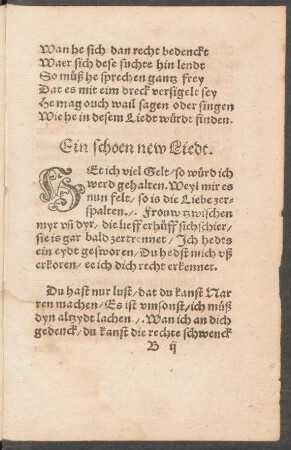 Wan he sich dan recht bedenckt
Waer sich dese suchte hin lendt
So müß he sprechen gantz frey
Dat es mit eim dreck versigelt sey
He mag ouch wail sagen oder singen
Wie he in desem Liedt würdt finden.
Ein schoen new Liedt.
HEt ich viel Gelt/so würd ich
werd gehalten. Weyl mir es
nun felt/so is die Liebe zer-
spalten./. Frouw tzwischen
myr vñ dyr, die lieff erhüff sich schier/
sie is gar bald zertrennet/Ich hedts
ein eydt gesworen/Du hedst mich vß
erkoren/ee ich dich recht erkenner.
Du hast nur lust/dat du kanst Nar
ren machen/Es ist vmsonst/ich müß
dyn altzydt lachen./. Wan ich an dich
gedenck/du kanst die rechte schwenck
B ij